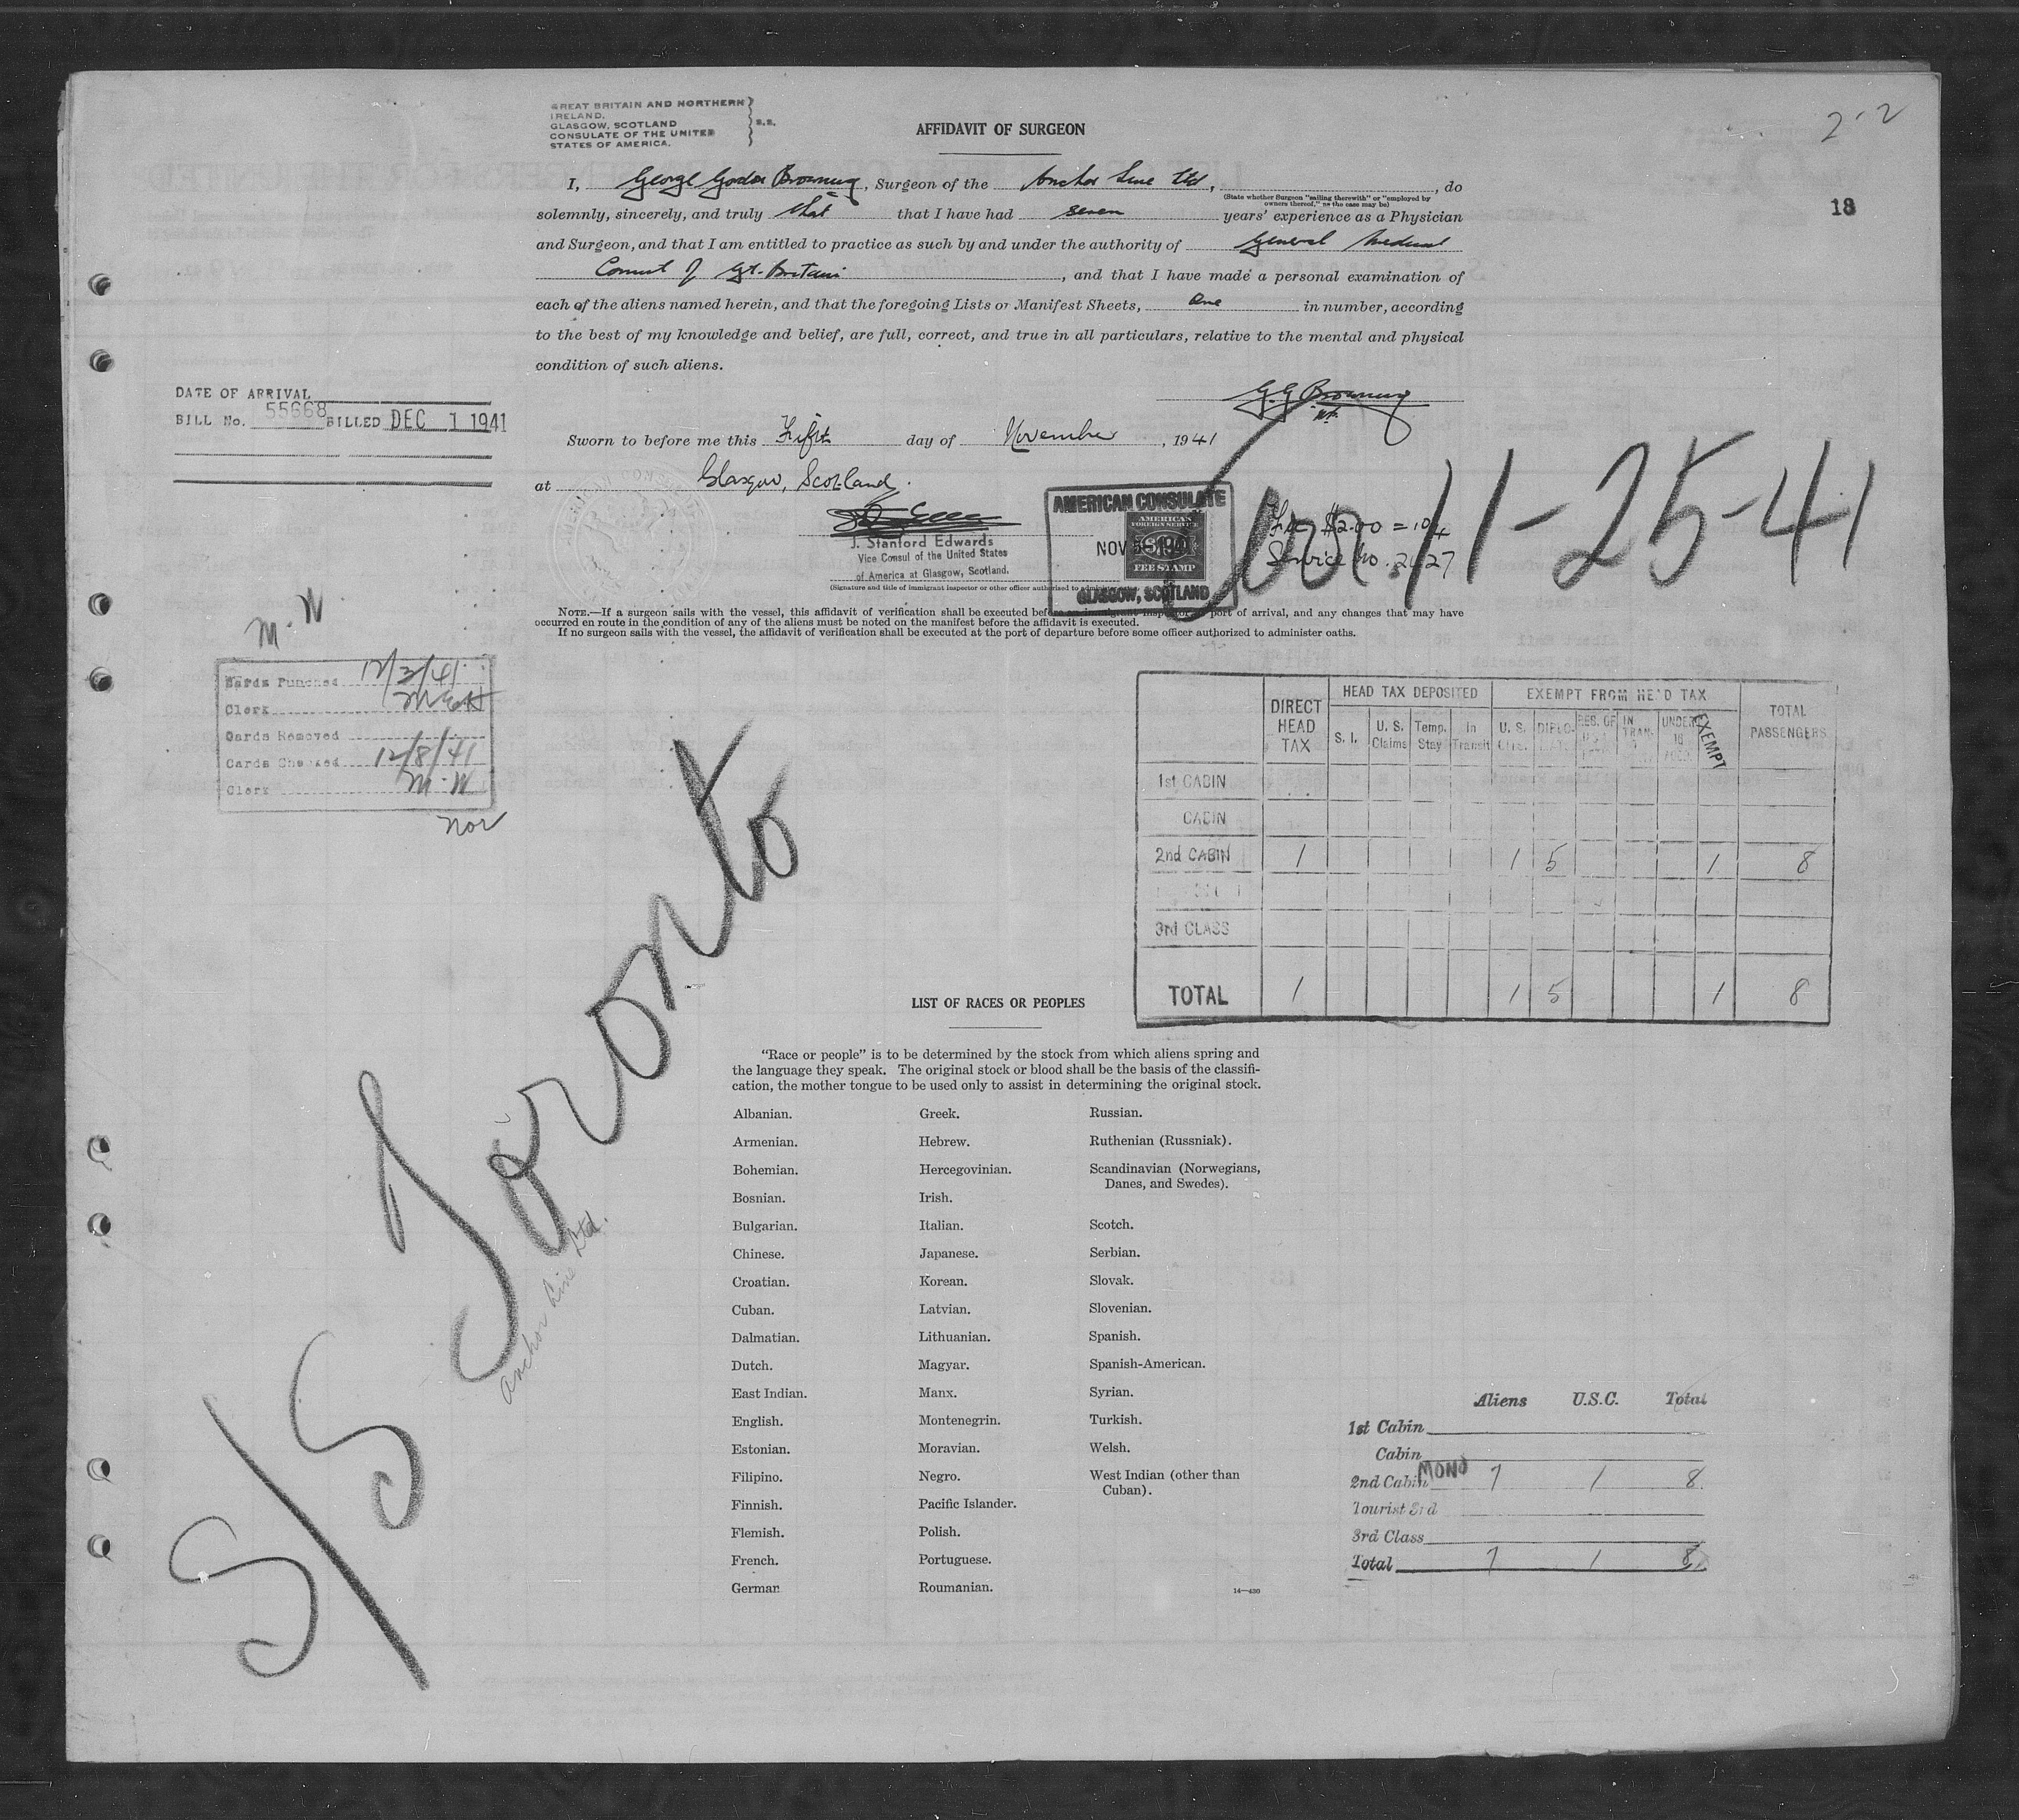 GREAT BRITAIN AND NORTHERN
IRELAND,
GLASGOW, SCOTLAND
CONSULATE OF THE UNITED
STATES OF AMERICA.
S.S.
AFFIDAVIT OF SURGEON
2
18
I, George Gordon Browning, Surgeon of the Anchor Line Ltd, , do
(State whether Surgeon "sailing therewith" or "employed by
owners thereof," as the case may be)
solemnly, sincerely, and truly that that I have had seven years' experience as a Physician
and Surgeon, and that I am entitled to practice as such by and under the authority of General Medical
of Gt. Britain , and that I have made a personal examination of
each of the aliens named herein, and that the foregoing Lists or Manifest Sheets, One in number, according
to the best of my knowledge and belief, are full, correct, and true in all particulars, relative to the mental and physical
condition of such aliens.
G. G Browning
DATE OF ARRIVAL
BILL No. 55668 BILLED DEC 1 1941
Sworn to before me this Fifth day of November , 1941
at Glasgow, Scotland.
J. Stanford Edwards
Vice Consul of the United States
of America at Glasgow, Scotland.
(Signature and title of immigrant inspector or other officer authorized to
AMERICAN CONSULATE
AMERICAN
FOREIGN SERVICE
NOV 5- 1941
FEE STAMP
GLASGOW, SCOTLAND
Fee $2.00 =
Service No. 2427
11-25-41
NOTE.—If a surgeon sails with the vessel, this affidavit of verification shall be executed before an immigrant inspector at port of arrival, and any changes that may have
occurred en route in the condition of any of the aliens must be noted on the manifest before the affidavit is executed.
If no surgeon sails with the vessel, the affidavit of verification shall be executed at the port of departure before some officer authorized to administer oaths.
M. W
Cards Punched 12/3/41
Clerk
Cards Removed
Cards Checked 12/8/41
Clerk M. W
Nor
HEAD TAX DEPOSITED EXEMPT FROM HEAD TAX
DIRECT HEAD TAX S. I. U. S. Claims Temp. Stay In Transit U. S. DIPLO- RES. OF IN TRAN- UNDER 16 EXEMPT TOTAL PASSENGERS
1st CABIN
CABIN
2nd CABIN 1 1 5 1 8
3rd CLASS
TOTAL 1 1 5 1 8
S/S Toronto
Anchor Line Ltd.
LIST OF RACES OR PEOPLES
"Race or people" is to be determined by the stock from which aliens spring and
the language they speak. The original stock or blood shall be the basis of the classifi-
cation, the mother tongue to be used only to assist in determining the original stock.
Albanian. Greek. Russian.
Armenian. Hebrew. Ruthenian (Russniak).
Bohemian. Hercegovinian. Scandinavian (Norwegians,
Danes, and Swedes).
Bosnian. Irish.
Bulgarian. Italian. Scotch.
Chinese. Japanese. Serbian.
Croatian. Korean. Slovak.
Cuban. Latvian. Slovenian.
Dalmatian. Lithuanian. Spanish.
Dutch. Magyar. Spanish-American.
East Indian. Manx. Syrian.
English. Montenegrin. Turkish.
Estonian. Moravian. Welsh.
Filipino. Negro. West Indian (other than
Cuban).
Finnish. Pacific Islander.
Flemish. Polish.
French. Portuguese.
German Roumanian.
14—430
Aliens U.S.C. Total
1st Cabin
Cabin
2nd Cabin MONO 7 1 8
Tourist 3rd
3rd Class
Total 7 1 8